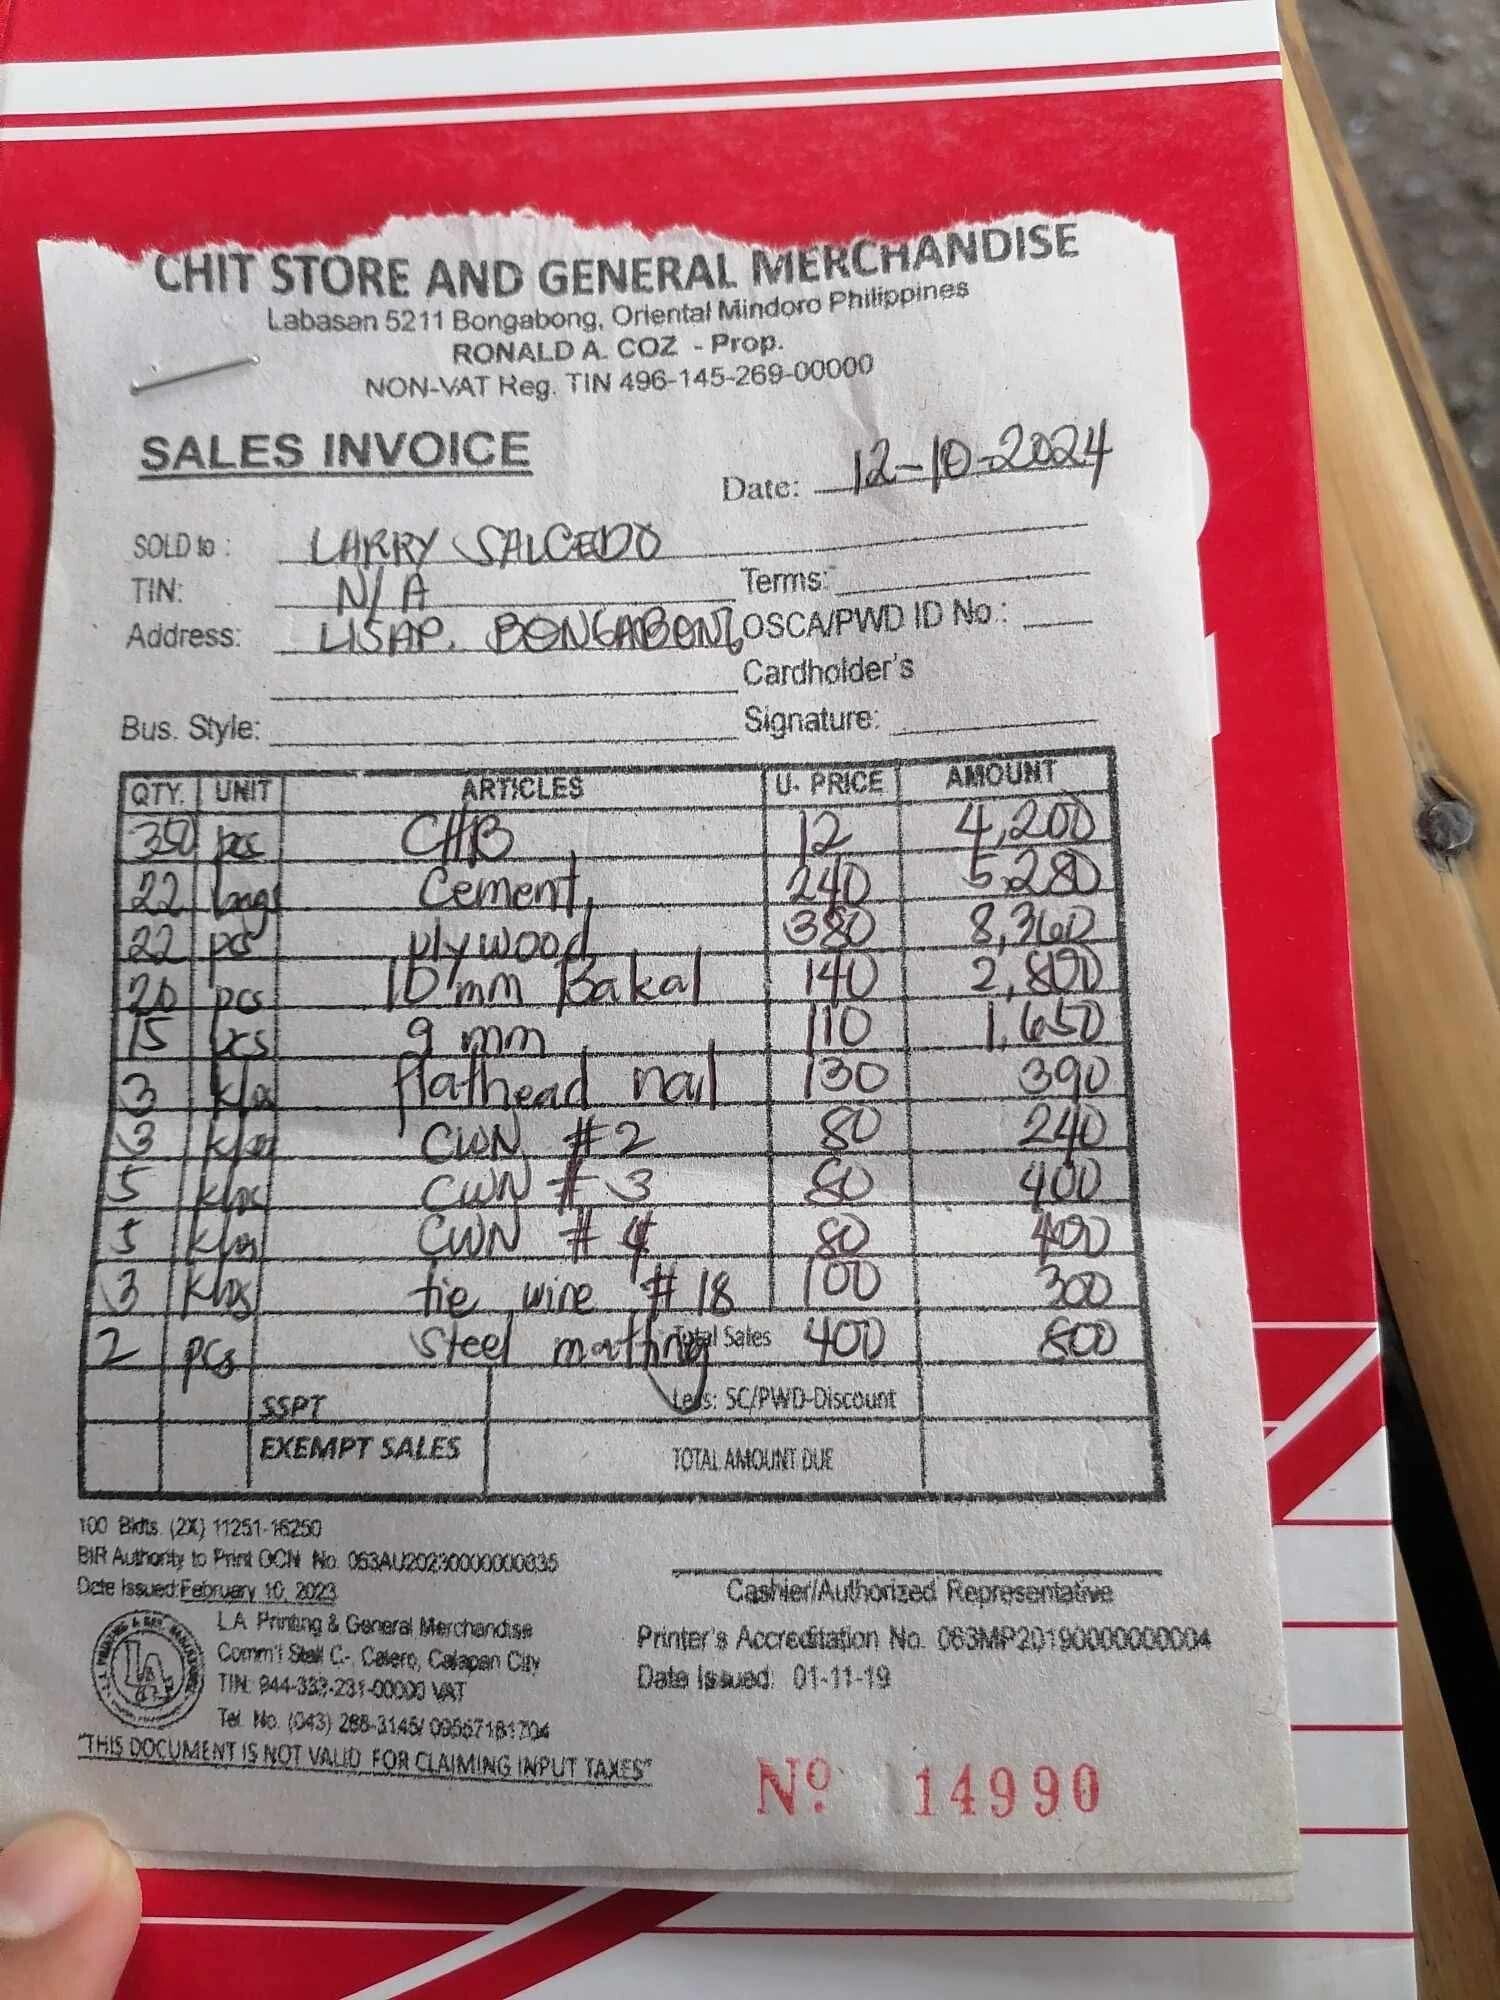 CHIT STORE AND GENERAL MERCHANDISE
Labasan 5211 Bongabong, Oriental Mindoro Philippines
RONALD A. COZ - Prop.
NON-VAT Reg. TIN 496-145-269-00000
SALES INVOICE
Date: 12-10-2024
SOLD to : LARRY SALCEDO
TIN: N/A Terms:
Address: LISAP. BONGABONG OSCA/PWD ID No.:
Cardholder's
Bus. Style: Signature:
QTY. UNIT ARTICLES U. PRICE AMOUNT
350 pcs CHB 12 4,200
22 bags Cement 240 5,280
22 pcs plywood 380 8,360
20 pcs 10 mm Bakal 140 2,800
15 pcs 9 mm 110 1,650
3 klos flathead nail 130 390
3 klos CWN #2 80 240
5 klos CWN #3 80 400
5 klos CWN #4 80 400
3 klos tie wire #18 100 300
2 pcs steel matting Total Sales 400 800
SSPT Less: SC/PWD-Discount
EXEMPT SALES TOTAL AMOUNT DUE
100 Bklts. (2X) 11251-16250
BIR Authority to Print OCN No. 063AU20230000000835
Date Issued: February 10, 2023
Cashier/Authorized Representative
L.A. Printing & General Merchandise
Comm'l Stall C-, Calero, Calapan City
TIN: 944-333-231-00000 VAT
Tel. No. (043) 288-3145/ 09567181704
Printer's Accreditation No. 063MP20190000000004
Date Issued: 01-11-19
"THIS DOCUMENT IS NOT VALID FOR CLAIMING INPUT TAXES"
Nº 14990